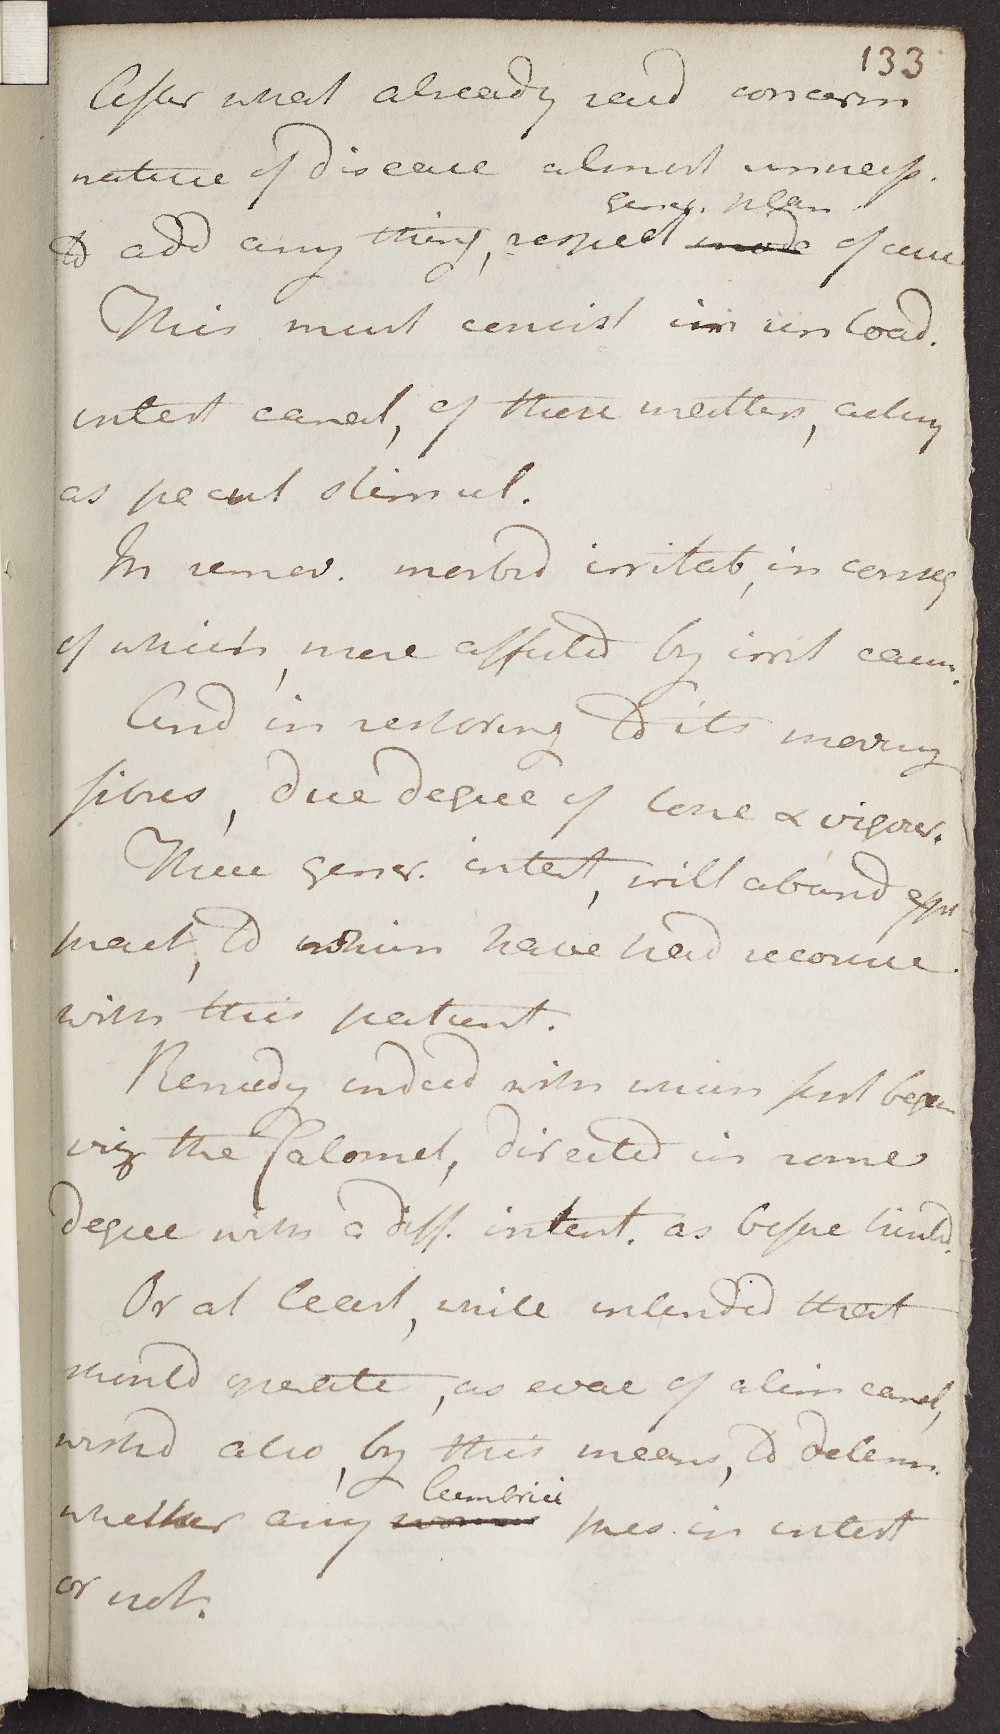 133
After what already said concern
nature of disease almost unnecess.
gener. plan
to add any thing, respect mode of cure
This must consist in unload.
intest canal, of these matters, acting
as pecul stimul.
In remov. morbid irritab, in conseq
of which, more affected by irrit caus.
And in restoring to its moving
fibres, due degree of tone & vigour.
These gener. intent, will abund appr
pract, to which have had recourse
with this patient.
Remedy indeed with which first began
viz the Calomel, directed in some
degree with a diff. intent. as before hinted.
Or at least, while intended that
should operate, as evac of alim canal,
wished also, by this means, to determ.
lumbrici
whether any worms pres. in intest
or not.